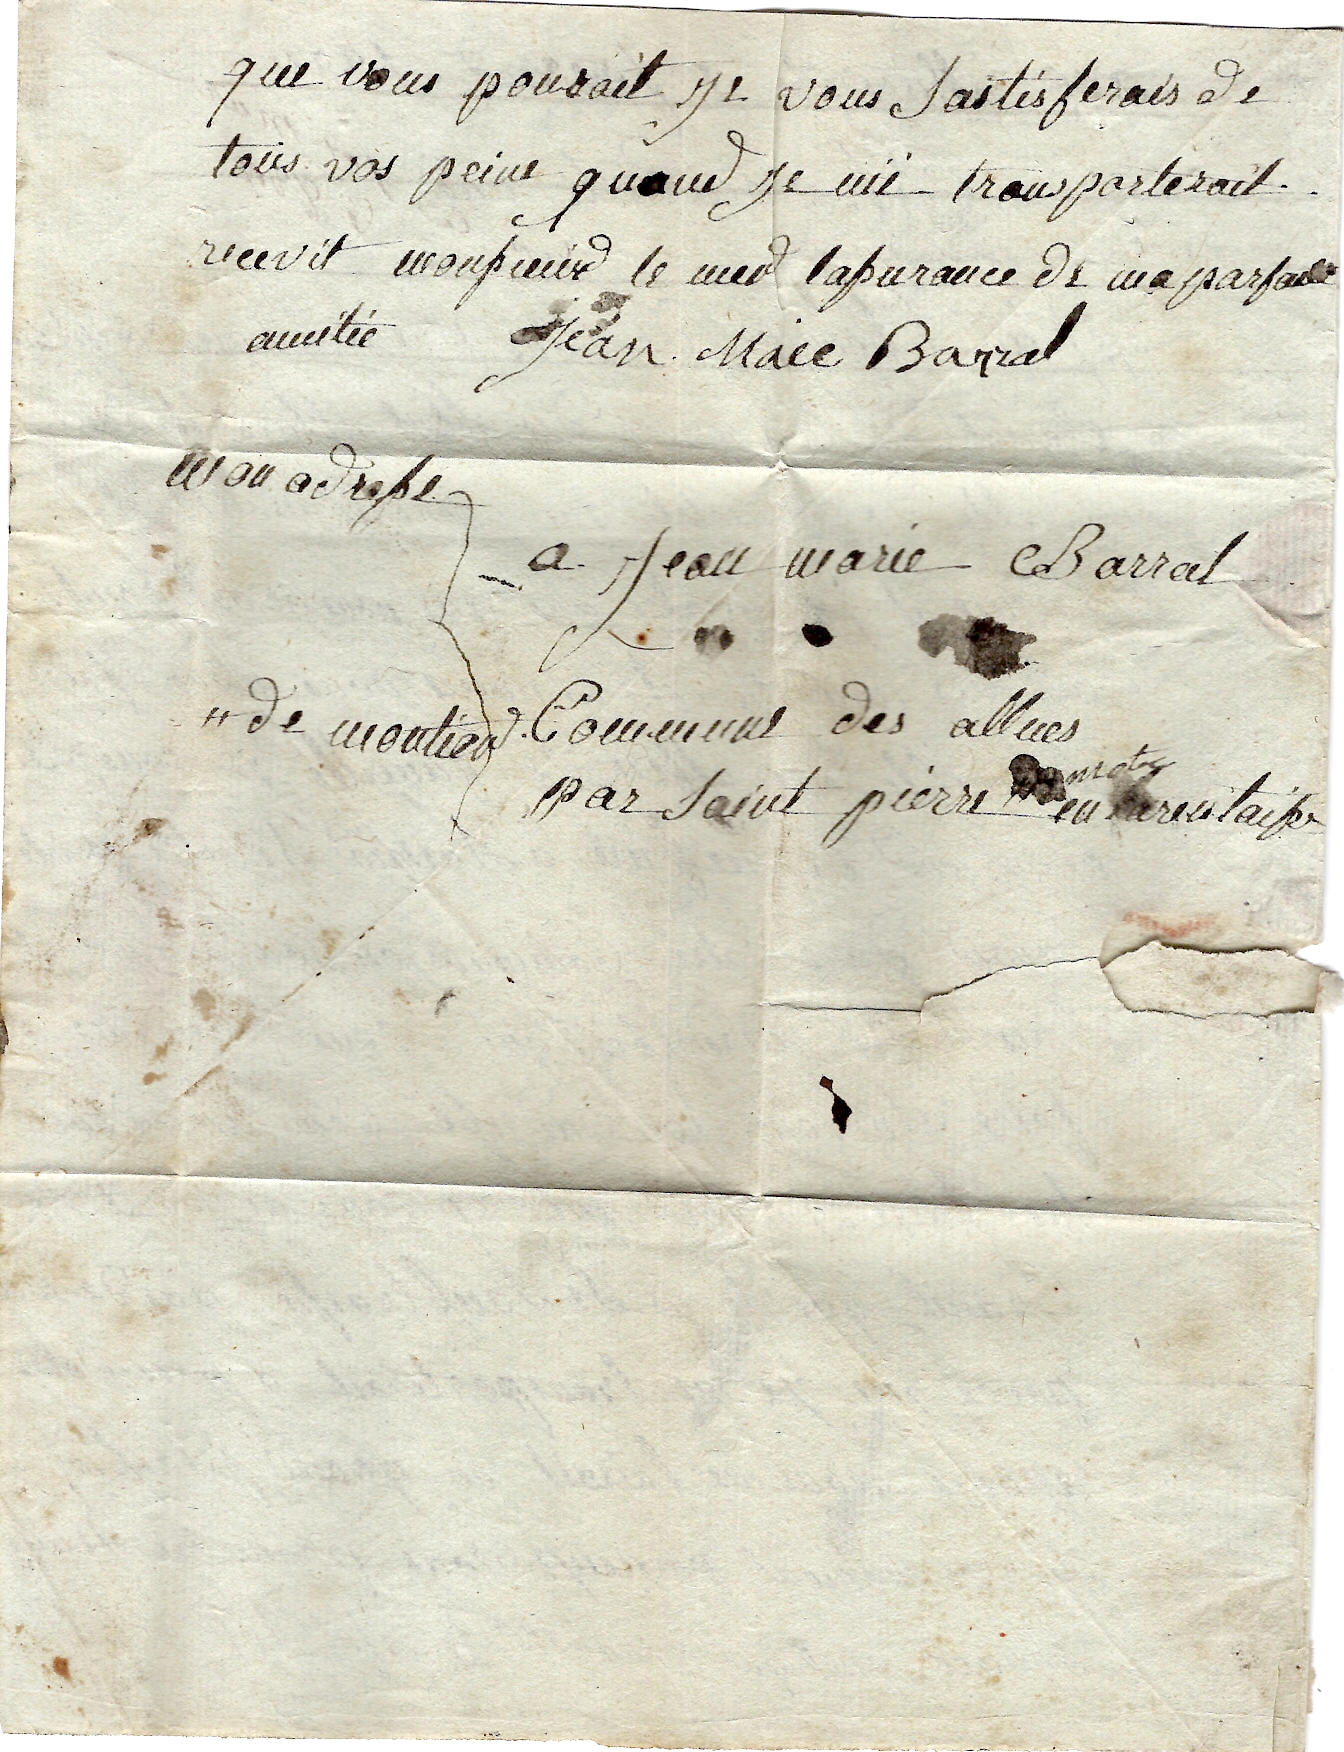 que vous pourait je vous sastisferais de
tous vos peine quand je mi transporterait.
recevit monsieur le med lassurance de ma parfaite
amitié Jean Maie Barral
mon adresse
a Jean marie Barral
"de moutier Commune des allues
par saint pierre en tarentaise